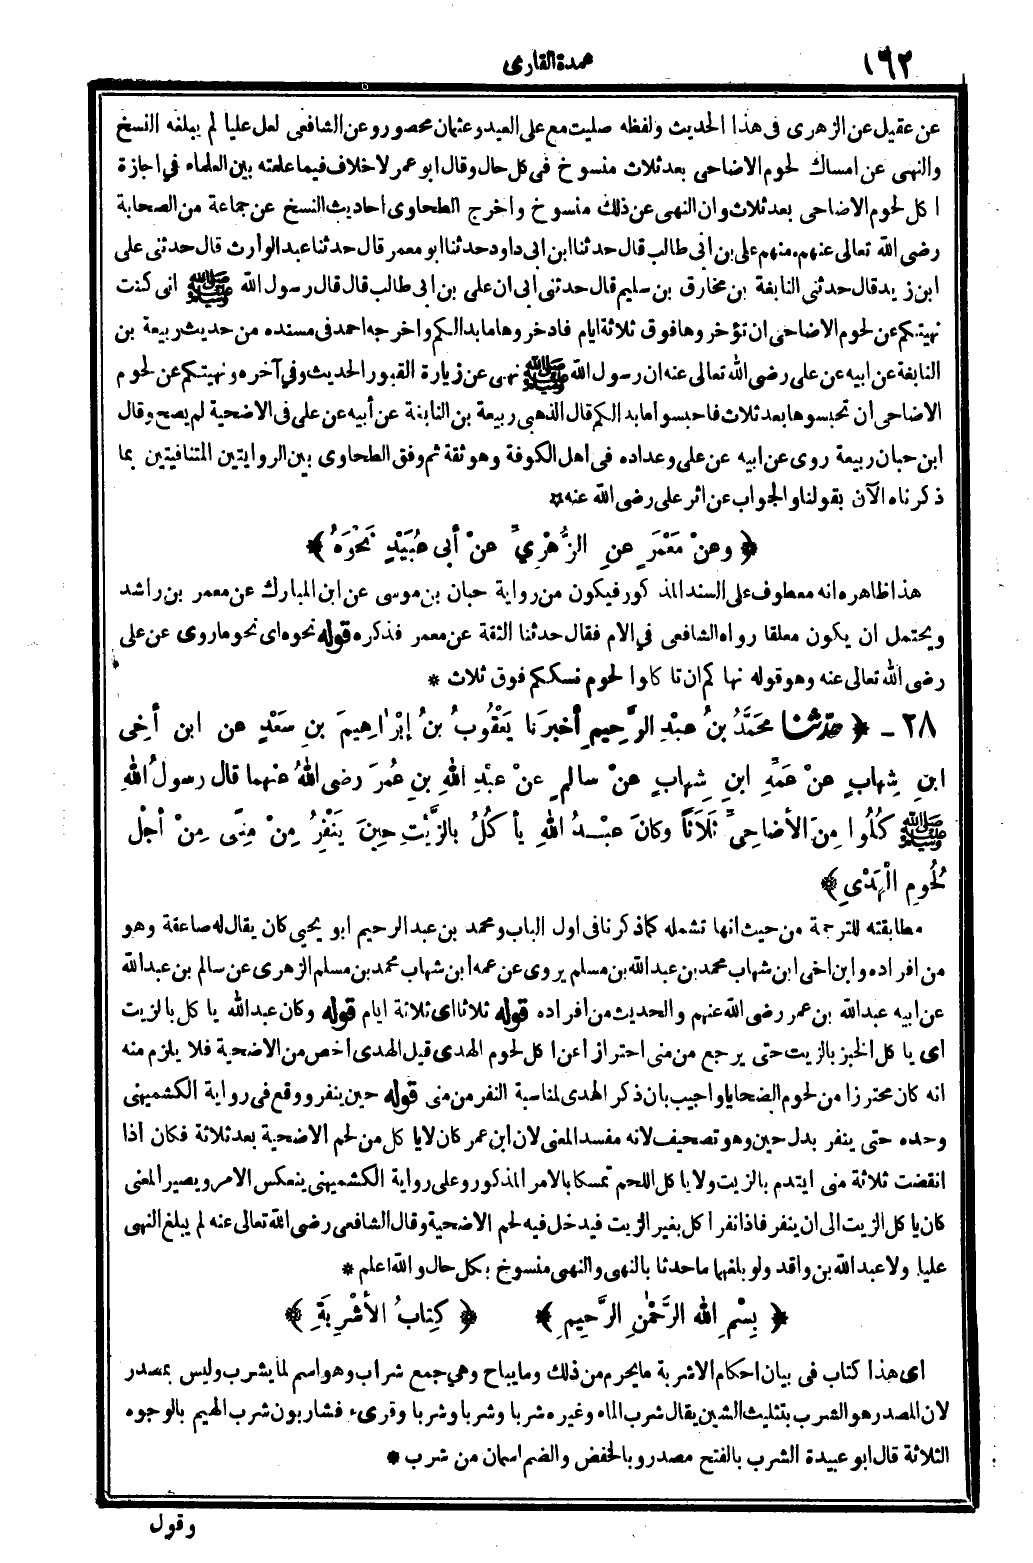 ١٦٢
عمدة القارى
عن عقيل عن الزهرى فى هذا الحديث ولفظه صليت مع على العيد وعثمان محصور وعن الشافعى لعل عليا لم يبلغه النسخ
والنهى عن امساك لحوم الاضاحى بعد ثلاث منسوخ فى كل حال وقال ابو عمر لا خلاف فيما علمته بين العلماء في اجازة
اكل لحوم الاضاحى بعد ثلاث وان النهى عن ذلك منسوخ واخرج الطحاوى احاديث النسخ عن جماعة من الصحابة
رضى الله تعالى عنهم. منهم على بن ابى طالب قال حدثنا ابن ابى داود حدثنا ابو معمر قال حدثنا عبد الوارث قال حدثنى على
ابن زيد قال حدثنى النابغة بن مخارق بن سليم قال حدثنى ابى ان على بن ابى طالب قال قال رسول الله ﷺ انى كنت
نهيتكم عن لحوم الاضاحى ان تؤخروها فوق ثلاثة ايام فادخروها ما بدا لكم واخرجه احمد فى مسنده من حديث ربيعة بن
النابغة عن ابيه عن على رضى الله تعالى عنه ان رسول الله ﷺ نهى عن زيارة القبور الحديث وفي آخره ونهيتكم عن لحوم
الاضاحى أن تحبسوها بعد ثلاث فاحبسوا ما بدا لكم قال الذهبى ربيعة بن النابغة عن أبيه عن على فى الاضحية لم يصح وقال
ابن حبان ربيعة روى عن ابيه عن على وعداده فى اهل الكوفة وهو ثقة ثم وفق الطحاوى بين الروايتين المتنافيتين بما
ذكرناه الآن بقولنا والجواب عن اثر على رضى الله عنه *
﴿ وعنْ مَعْمَرٍ عنِ الزُّهْرِيِّ عنْ أبى عُبَيْدٍ نَحْوَهُ ﴾
هذا ظاهره انه معطوف على السند المذكور فيكون من رواية حبان بن موسى عن ابن المبارك عن معمر بن راشد
ويحتمل ان يكون معلقا رواه الشافعى في الام فقال حدثنا الثقة عن معمر فذكره قوله نحوه اى نحو ما روى عن على
رضى الله تعالى عنه وهو قوله نهاكم ان تاكلوا لحوم نسككم فوق ثلاث *
٢٨ - ﴿ حدّثنا محَمَّدُ بنُ عبْدِ الرَّحِيمِ أخبرَنا يَعْقُوبُ بنُ إبْرَاهِيمَ بنِ سَعْدٍ عن ابن أخِى
ابنِ شِهابٍ عنْ عَمِّهِ ابنِ شِهابٍ عنْ سالمٍ عنْ عبْدِ اللهِ بنِ عُمَرَ رضى اللهُ عنهما قال رسولُ اللهِ
ﷺ كُلُوا مِنَ الأضاحِىِّ ثَلَاثًا وكانَ عبْدُ اللهِ يأكُلُ بالزَّيْتِ حِينَ يَنْفِرُ مِنْ مِنًى مِنْ أجْلِ
لُحُومِ الْهَدْىِ ﴾
مطابقته للترجمة من حيث انها تشمله كما ذكرنا فى اول الباب ومحمد بن عبد الرحيم ابو يحيى كان يقال له صاعقة وهو
من افراده وابن اخى ابن شهاب محمد بن عبد الله بن مسلم يروى عن عمه ابن شهاب محمد بن مسلم الزهرى عن سالم بن عبد الله
عن ابيه عبد الله بن عمر رضى الله عنهم والحديث من افراده قوله ثلاثا اى ثلاثة ايام قوله وكان عبد الله ياكل بالزيت
اى ياكل الخبز بالزيت حتى يرجع من منى احترازا عن اكل لحوم الهدى قيل الهدى اخص من الاضحية فلا يلزم منه
انه كان محترزا من لحوم الضحايا واجيب بان ذكر الهدى لمناسبة النفر من منى قوله حين ينفر ووقع فى رواية الكشميهنى
وحده حتى ينفر بدل حين وهو تصحيف لانه مفسد المعنى لان ابن عمر كان لا ياكل من لحم الاضحية بعد ثلاثة فكان اذا
انقضت ثلاثة منى ايتدم بالزيت ولا ياكل اللحم تمسكا بالامر المذكور وعلى رواية الكشميهنى ينعكس الامر ويصير المعنى
كان ياكل الزيت الى ان ينفر فاذا نفر اكل بغير الزيت فيدخل فيه لحم الاضحية وقال الشافعى رضى الله تعالى عنه لم يبلغ النهى
عليا ولا عبد الله بن واقد ولو بلغهما ما حدثا بالنهى والنهى منسوخ بكل حال والله اعلم *
﴿ بِسْمِ اللهِ الرَّحْمٰنِ الرَّحِيمِ ﴾ ﴿ كِتابُ الأشْرِبَةِ ﴾
اى هذا كتاب فى بيان احكام الاشربة ما يحرم من ذلك وما يباح وهي جمع شراب وهو اسم لما يشرب وليس بمصدر
لان المصدر هو الشرب بتثليث الشين يقال شرب الماء وغيره شربا وشربا وشربا وقرىء فشاربون شرب الهيم بالوجوه
الثلاثة قال ابو عبيدة الشرب بالفتح مصدر وبالخفض والضم اسمان من شرب *
وقول